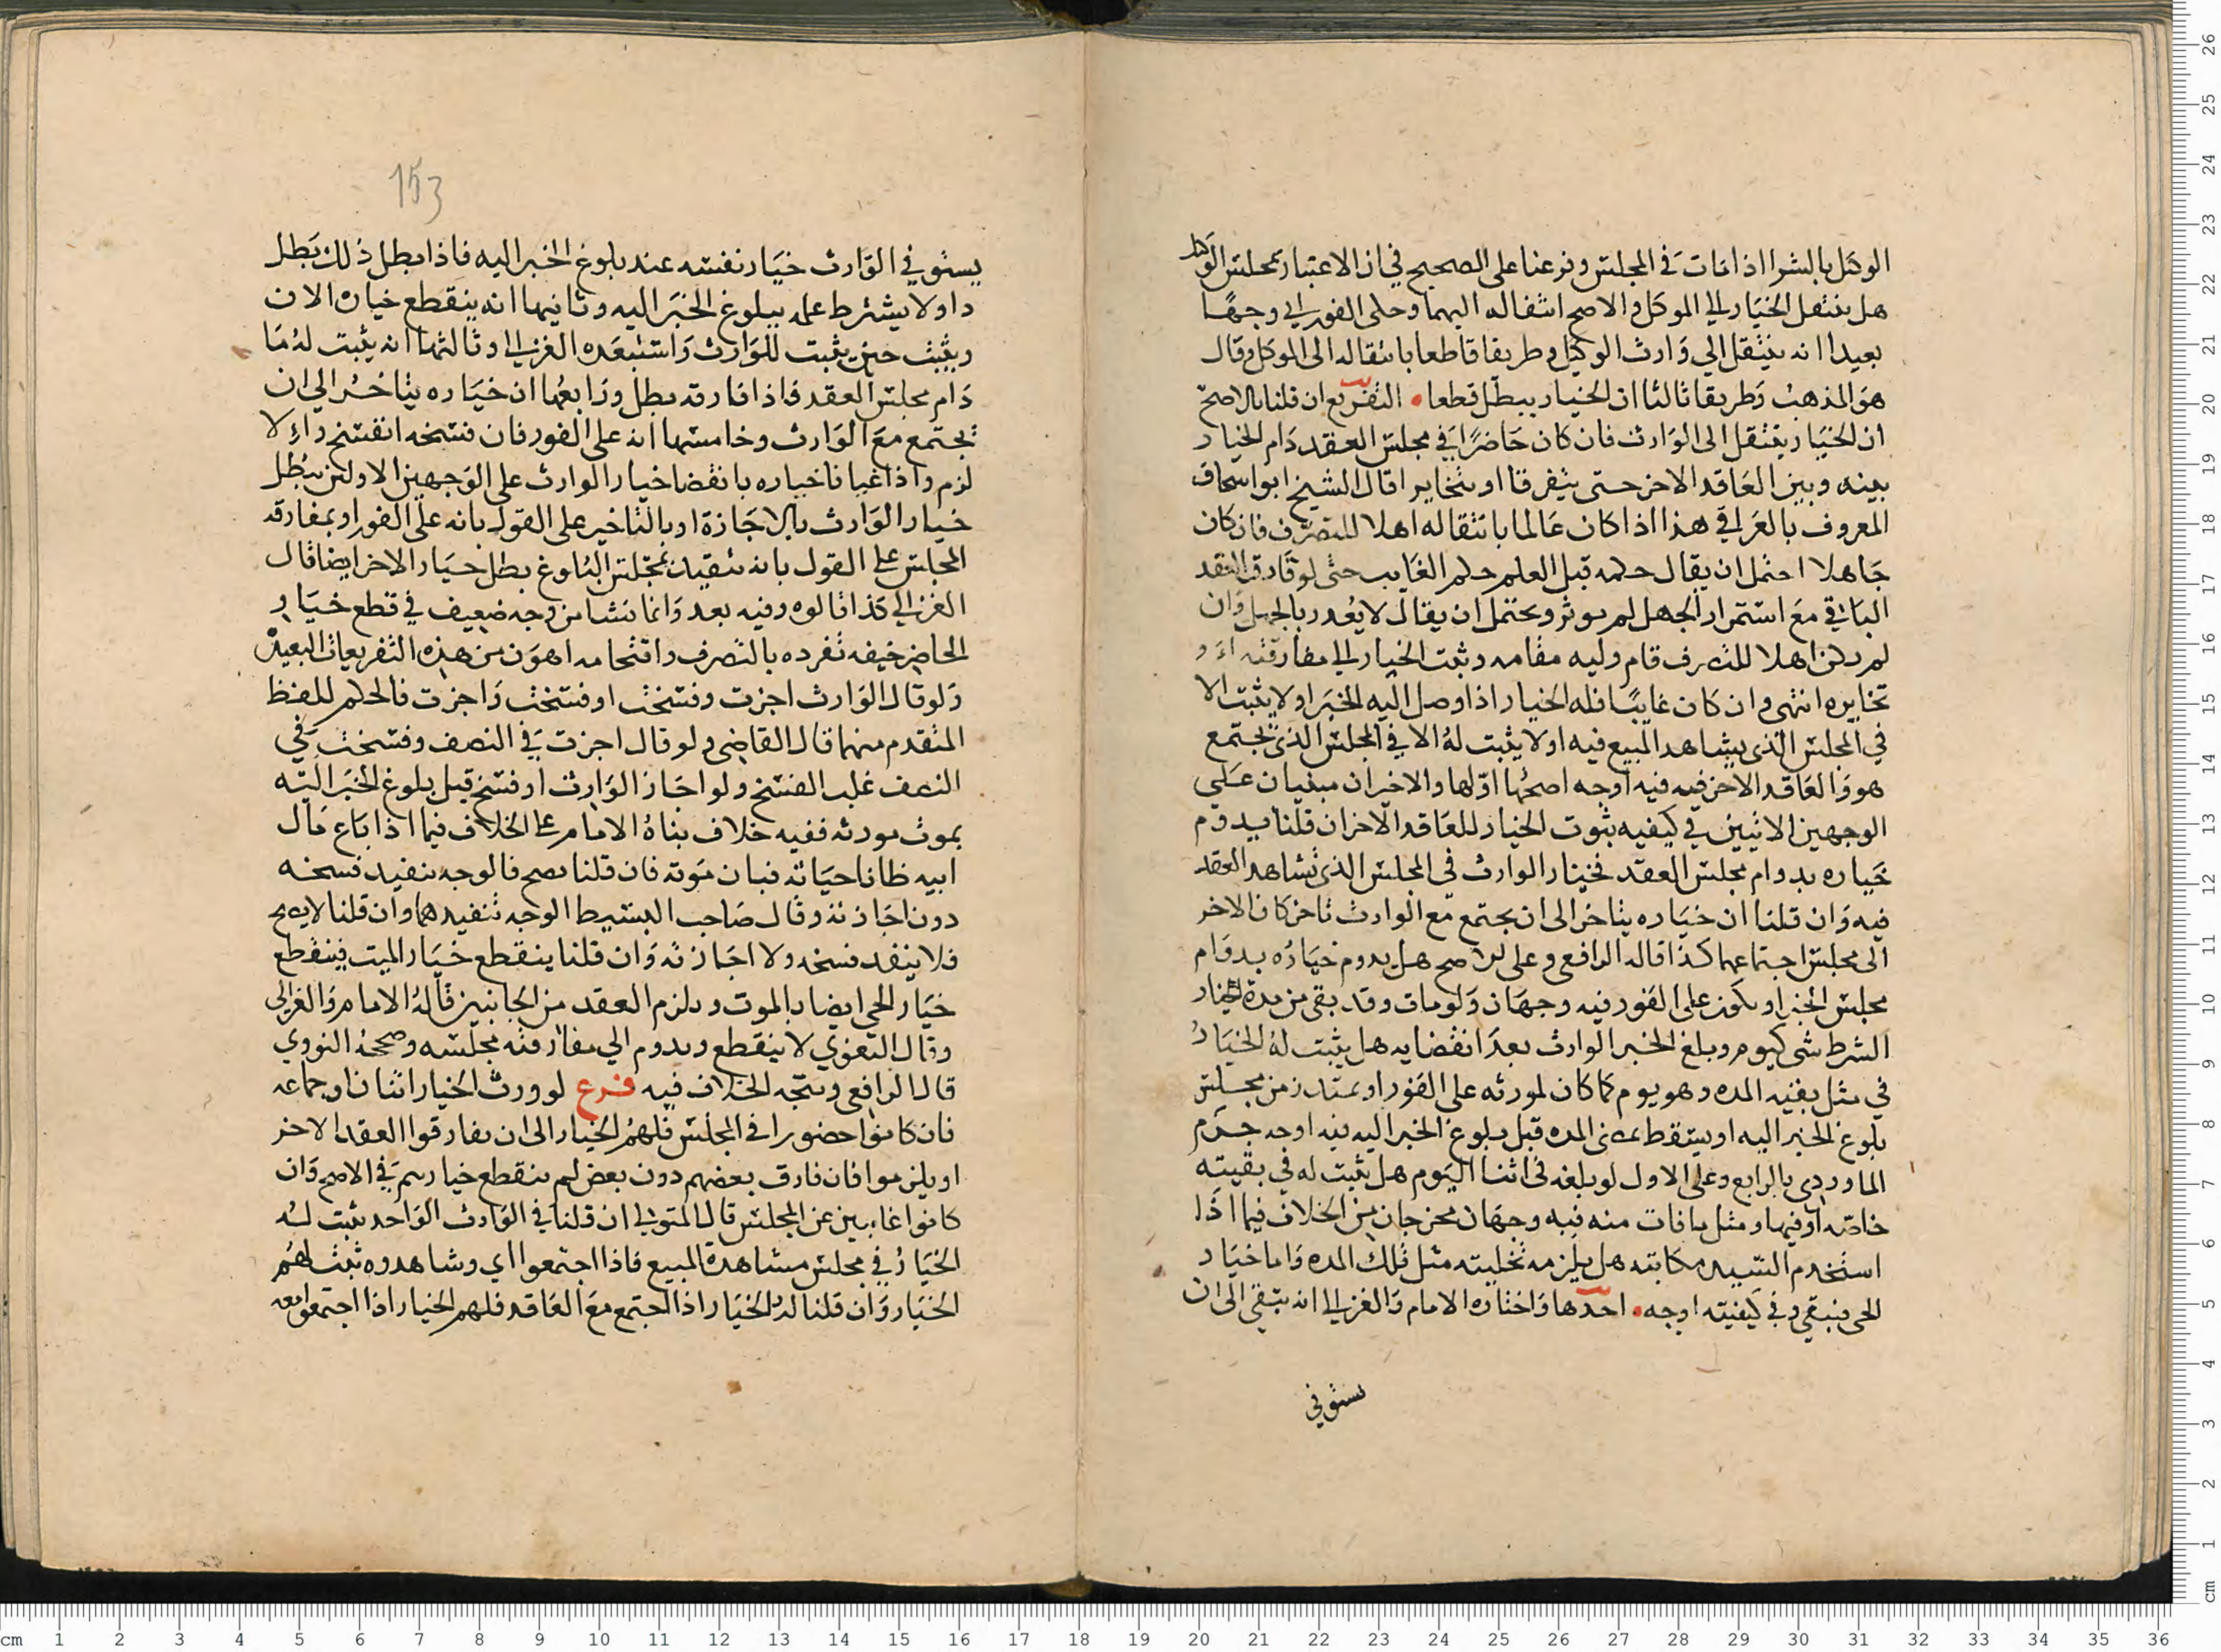 الوكيل بالشرا اذا مات في المجلس وفرعنا على الصحيح في ان الاعتبار بمجلس الوكيل
هل ينتقل الخيار الي الموكل والاصح انتقاله اليهما وحكى الفوراني وجها
بعيدا انه ينتقل الي وارث الوكيل وطريقا قاطعا بانتقاله الى الموكل وقال
هو المذهب وطريقا ثالثا ان الخيار يبطل قطعا • التفريع ان قلنا بالاصح
ان الخيار ينتقل الى الوارث فان كان حاضرا في مجلس العقد دام الخيار
بينه وبين العاقد الاخر حتى يتفرقا او يتخايرا قال الشيخ ابو اسحاق
المعروف بالعراقي هذا اذا كان عالما بانتقاله اهلا للتصرف فان كان
جاهلا احتمل ان يقال حكمه قبل العلم حكم الغايب حتى لو فارق العقد
الباقي مع استمرار الجهل لم يوثر ويحتمل ان يقال لا يعذر بالجهل وان
لم يكن اهلا للتصرف قام وليه مقامه وثبت الخيار الي مفارقته او
تخايره انتهى وان كان غايبا فله الخيار اذا وصل اليه الخبر او لا يثبت الا
في المجلس الذي يشاهد المبيع فيه او لا يثبت له الا في المجلس الذي يجتمع
هو والعاقد الاخر فيه فيه اوجه اصحها اولها والاخيران مبنيان على
الوجهين الاتيين في كيفيه ثبوت الخيار للعاقد الاخر ان قلنا يدوم
خياره بدوام مجلس العقد فخيار الوارث في المجلس الذي يشاهد العقد
فيه وان قلنا ان خياره يتاخر الى ان يجتمع مع الوارث تاخر كان الاخر
الى مجلس اجتماعهما كذا قاله الرافعي وعلى الاصح هل يدوم خياره بدوام
مجلس الخبر او يكون على الفور فيه وجهان ولو مات وقد بقي من مدة الخيار
الشرط شي كيوم وبلغ الخبر الوارث بعد انقضايه هل يثبت له الخيار
في مثل بقيه المده وهو يوم كما كان لمورثه على الفور او يمتد زمن مجلس
بلوغ الخبر اليه او يسقط بمضى المده قبل بلوغ الخبر اليه فيه اوجه جزم
الماوردي بالرابع وعلى الاول لو بلغه في اثنا اليوم هل يثبت له في بقيته
خاصه او فيها ومثل ما فات منه فيه وجهان مخرجان من الخلاف فيما اذا
استخدم السيد مكاتبه هل يلزمه تخليته مثل تلك المده واما خيار
الحي فيبقى وفي كيفيته اوجه • احدها واختاره الامام والغزالي انه يبقى الى ان
يستوفي
153
يستوفي الوارث خيار نفسه عند بلوغ الخبر اليه فاذا بطل ذلك بطل
دا ولا يشترط علمه ببلوغ الخبر اليه وثانيها انه ينقطع خياره الان
ويثبت حين يثبت للوارث واستبعده الغزالي وثالثها انه يثبت له ما
دام مجلس العقد فاذا فارقه بطل ورابعها ان خياره يتاخر الي ان
يجتمع مع الوارث وخامسها انه على الفور فان فسخه انفسخ والا
لزم واذا غيانا خياره بانقضا خيار الوارث على الوجهين الاولين يبطل
خيار الوارث بالاجازة او بالتاخير على القول بانه على الفور او بمفارقه
المجلس على القول بانه يتقيد بمجلس البلوغ بطل خيار الاخر ايضا قال
الغزالي كذا قالوه وفيه بعد وانما نشا من وجه ضعيف في قطع خيار
الحاضر خيفه تفرده بالتصرف واقتحامه اهون من هذه التفريعات البعيده
ولو قال الوارث اجزت وفسخت او فسخت واجزت فالحكم للفظ
المتقدم منهما قال القاضي ولو قال اجزت في النصف وفسخت في
النصف غلب الفسخ ولو اجاز الوارث او فسخ قبل بلوغ الخبر اليه
بموت مورثه ففيه خلاف بناه الامام على الخلاف فيما اذا باع مال
ابيه ظانا حياته فبان موته فان قلنا يصح فالوجه تنفيذ فسخه
دون اجازته وقال صاحب البسيط الوجه تنفيذهما وان قلنا لا يصح
فلا ينفذ فسخه ولا اجازته وان قلنا ينقطع خيار الميت فينقطع
خيار الحي ايضا بالموت ويلزم العقد من الجانبين قاله الامام والغزالي
وقال البغوي لا ينقطع ويدوم الي مفارقته مجلسه وصححه النووي
قال الرافعي ويتجه الخلاف فيه فرع لو ورث الخيار اثنان او جماعه
فان كانوا حضورا في المجلس فلهم الخيار الى ان يفارقوا العقد الاخر
او يلزموا فان فارق بعضهم دون بعض لم ينقطع خيارهم في الاصح وان
كانوا غايبين عن المجلس قال المتولي ان قلنا في الوارث الواحد يثبت له
الخيار في مجلس مشاهدة المبيع فاذا اجتمعوا اي وشاهدوه ثبت لهم
الخيار وان قلنا له الخيار اذا اجتمع مع العاقد فلهم الخيار اذا اجتمعوا معه